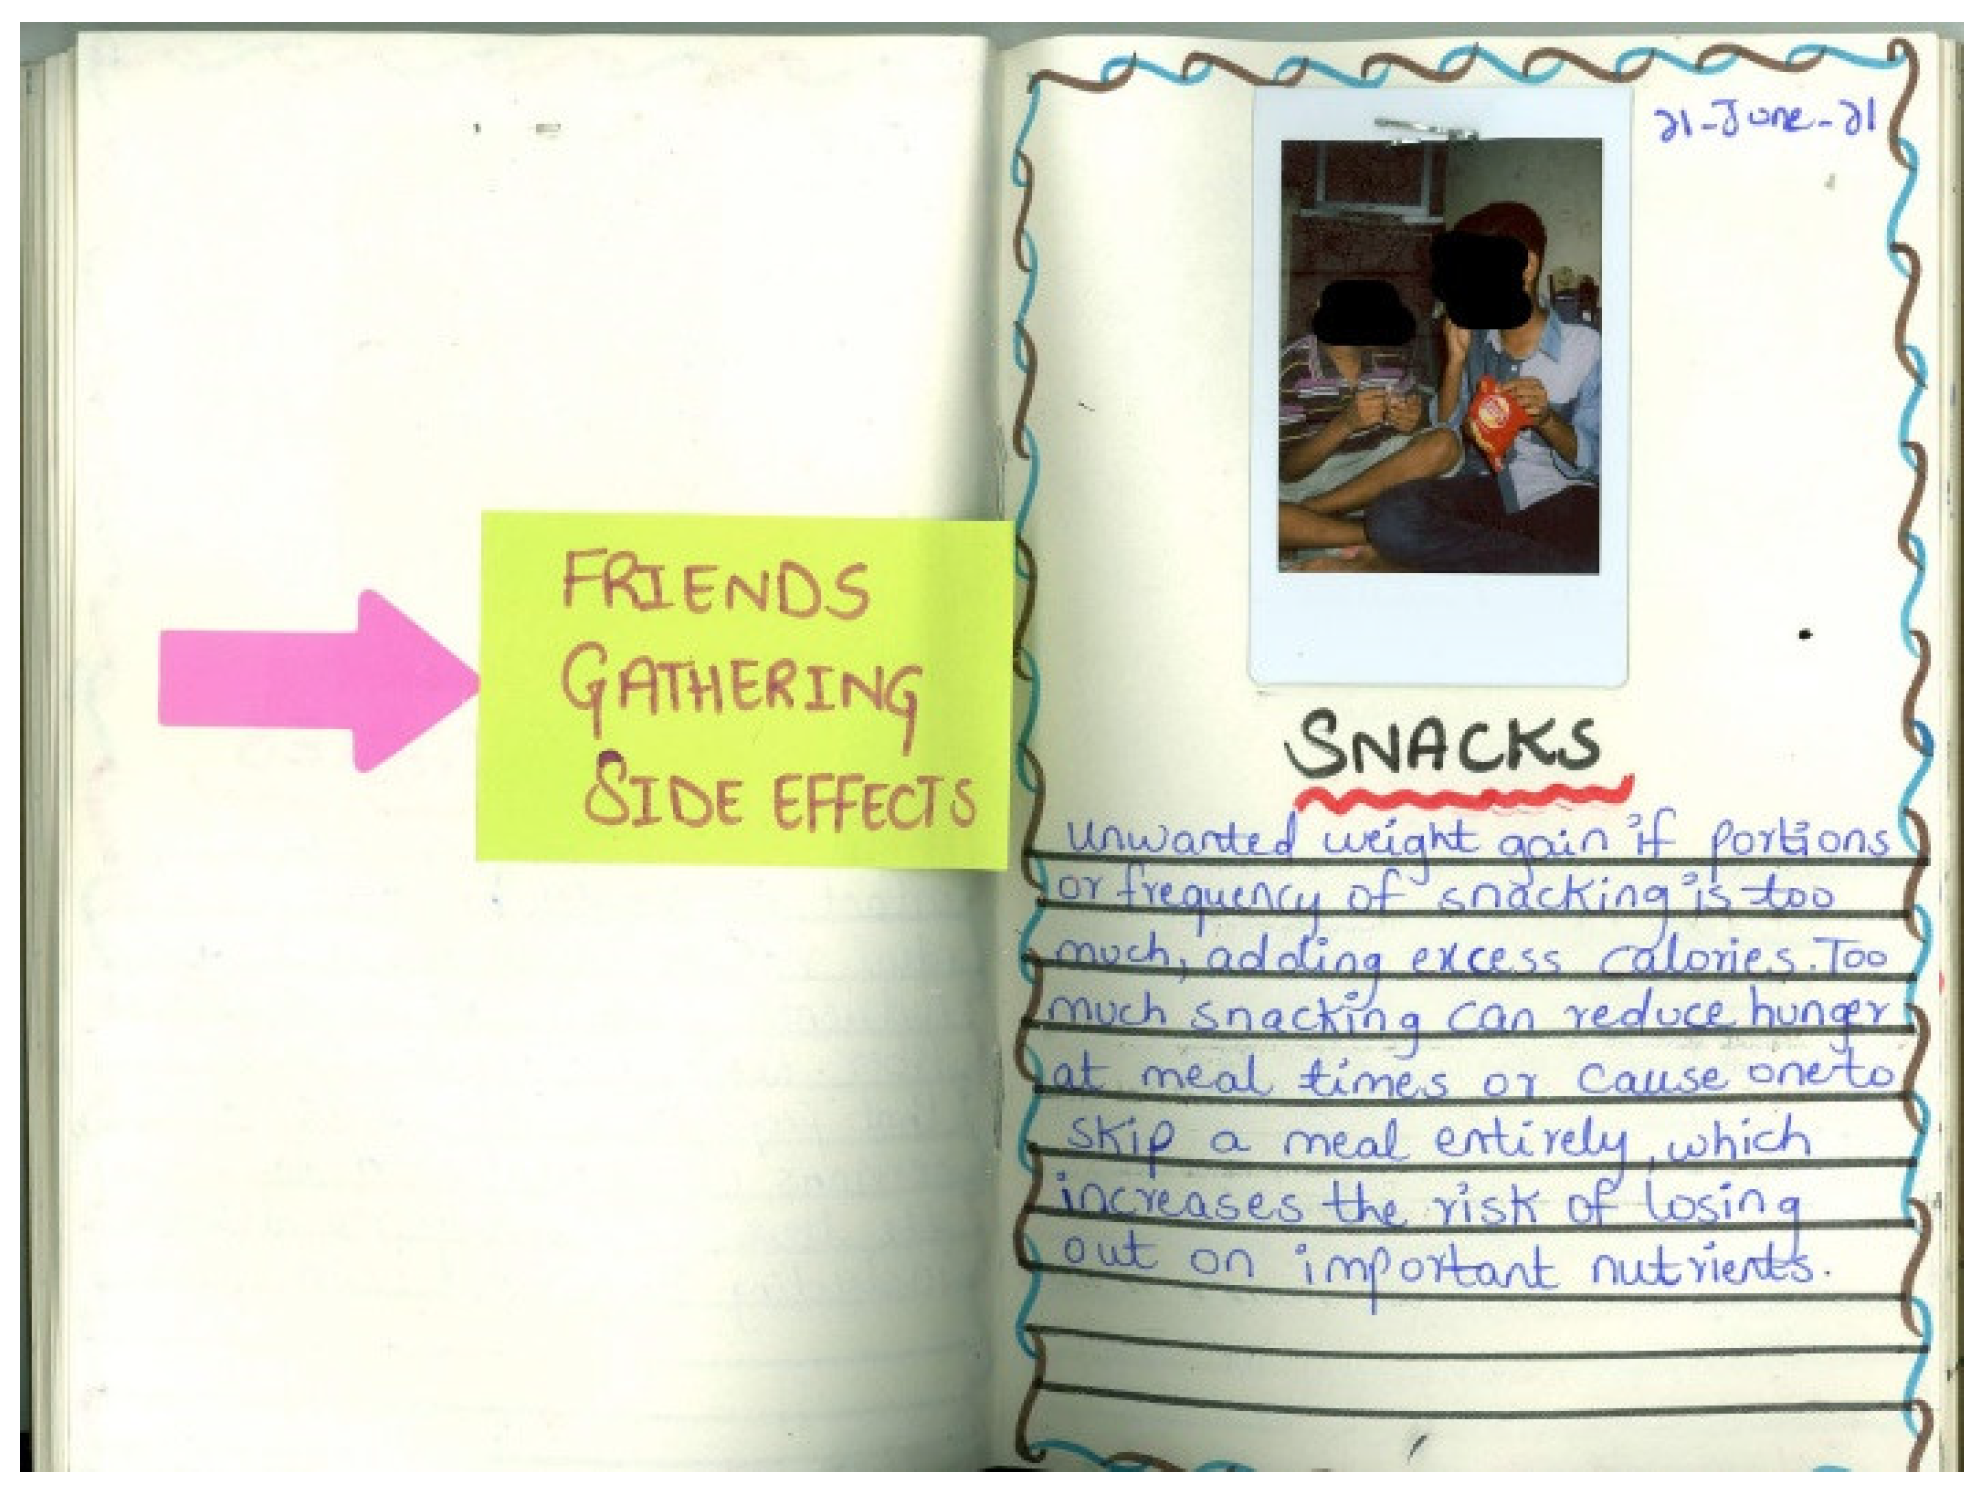 FRIENDS
GATHERING
SIDE EFFECTS
21-June-21
SNACKS
Unwanted weight gain if portions
or frequency of snacking is too
much, adding excess calories. Too
much snacking can reduce hunger
at meal times or cause one to
skip a meal entirely, which
increases the risk of losing
out on important nutrients.